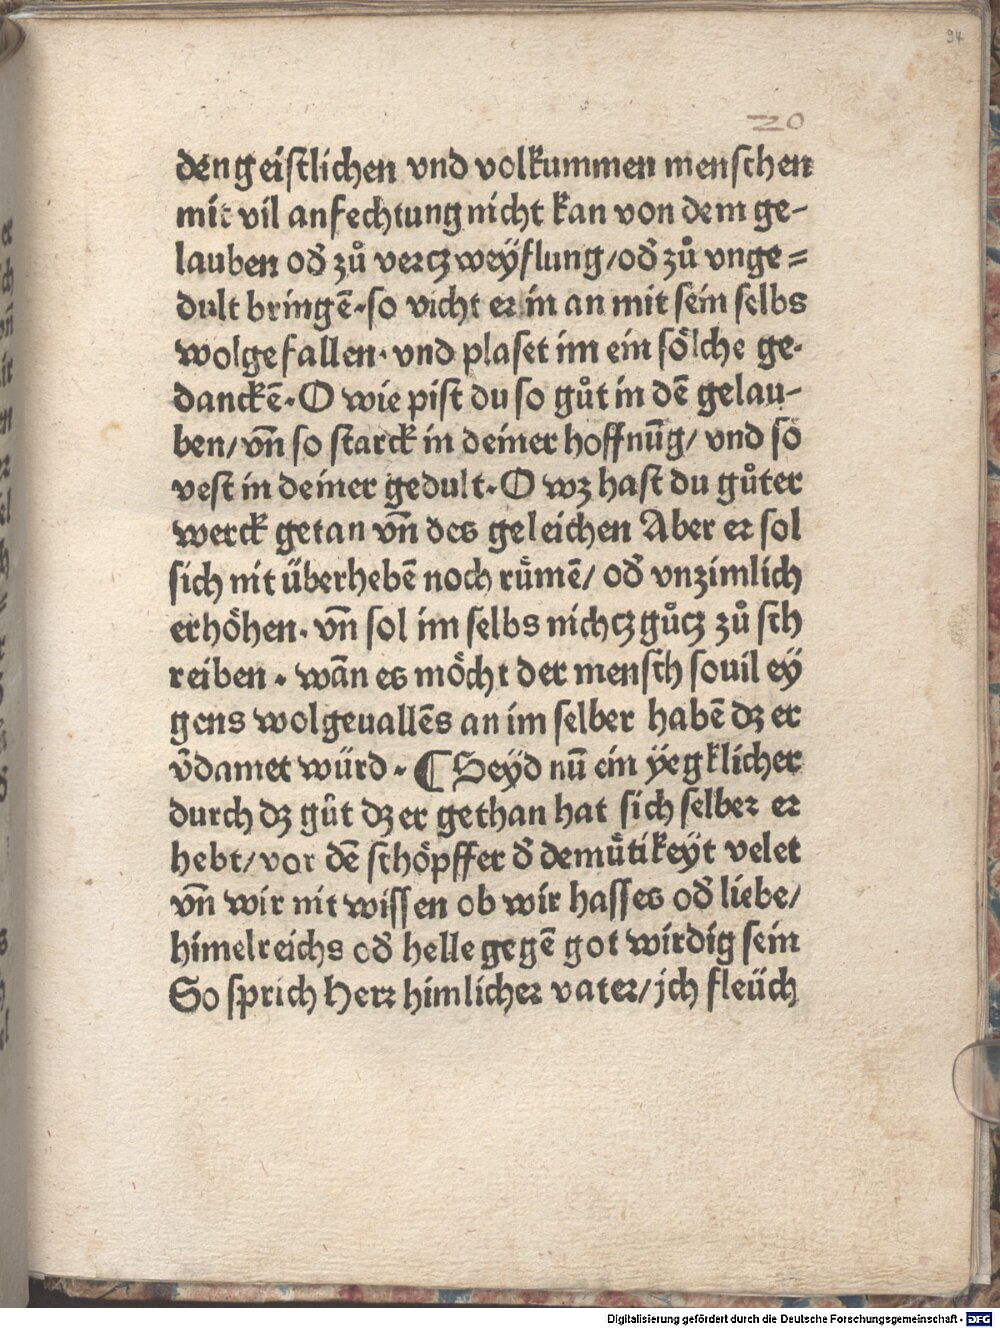 94
20
den geistlichen vnd volkummen menschen
mit vil anfechtung nicht kan von dem ge-
lauben od̕ zů vercʒweÿflung/od̕ zů vnge=
dult bringē·so vicht er in an mit sein selbs
wolgefallen·vnd plaset im ein sölche ge-
danckē·O wie pist du so gůt in dē gelau-
ben/vn̄ so starck in deiner hoffnūg/vnd so
vest in deiner gedult·O wʒ hast du gůter
werck getan vn̄ des geleichen Aber er sol
sich nit überhebē noch rümē/ od̕ vnzimlich
erhöhen·vn̄ sol im selbs nichcʒ gůcʒ zů sch
reiben·wān es möcht der mensch souil eÿ
gens wolgeuallēs an im selber habē dʒ er
v̄damet würd·¶Seÿd nū ein ÿegklicher
durch dʒ gůt dʒ er gethan hat sich selber er
hebt/vor dē schöpffer d̕ demütikeÿt velet
vn̄ wir nit wissen ob wir hasses od̕ liebe/
himelreichs od̕ helle gegē got wirdig sein
So sprich Herr himlicher vater/jch fleüch
Digitalisierung gefördert durch die Deutsche Forschungsgemeinschaft - DFG